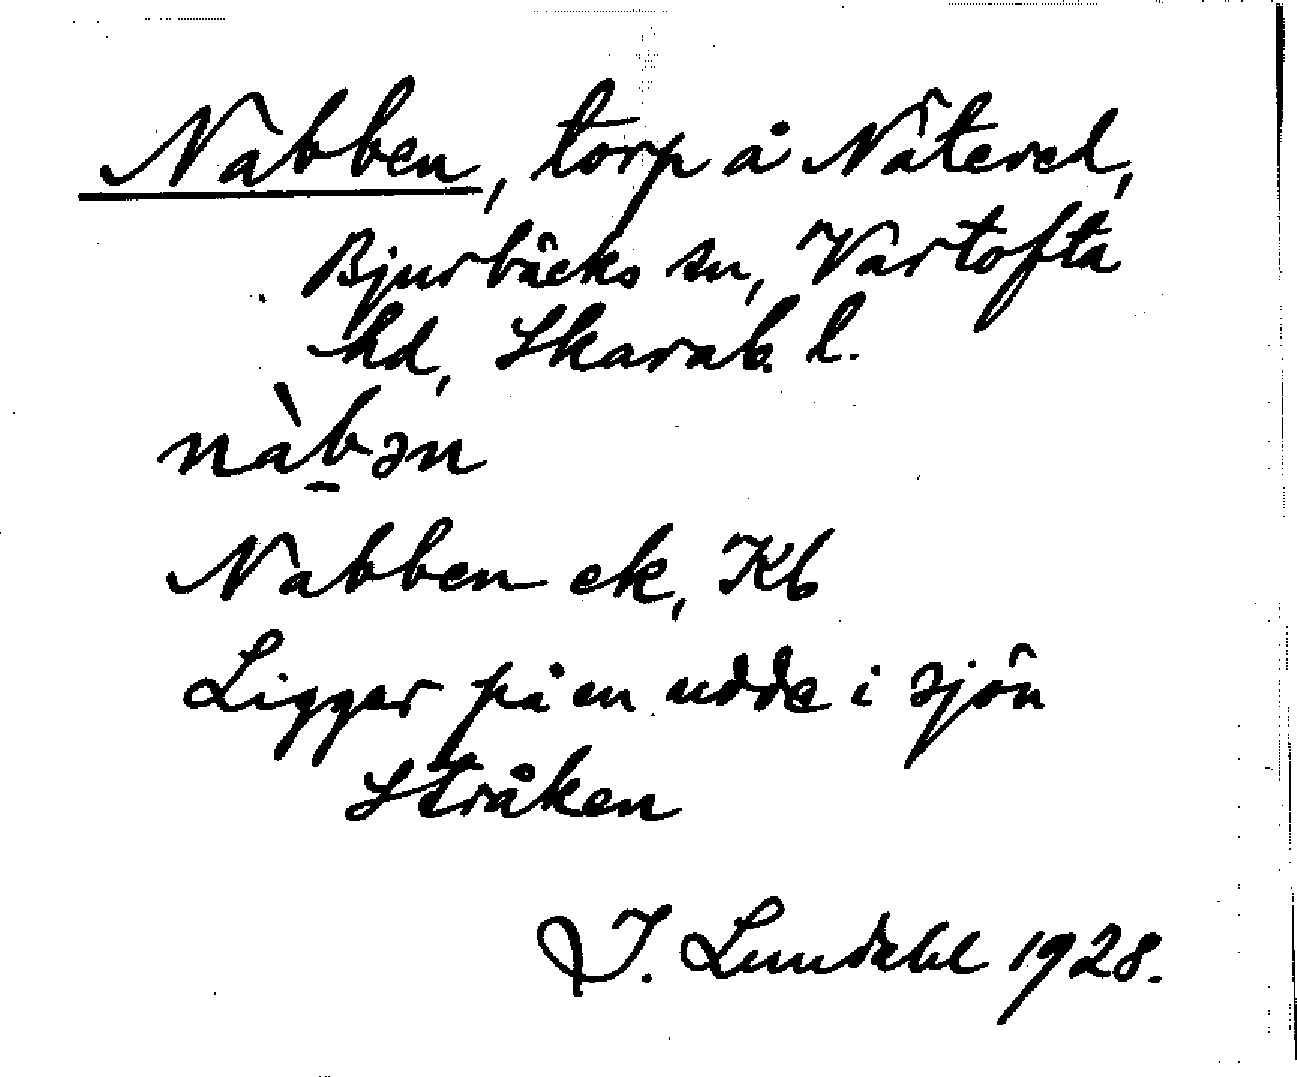 Nabben, torp å Nätered,
Bjurbäcks sn, Vartofta
hd, Skarab. l.
nàb̲ən
Nabben ek, Kb
Ligger på en udde i sjön
Stråken
I. Lundahl 1928.